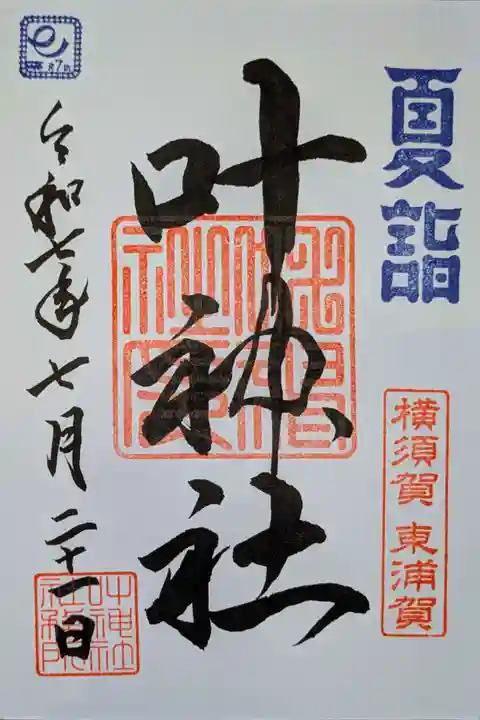 夏詣
横須賀 東浦賀
叶神社
令和七年七月二十一日
叶神社